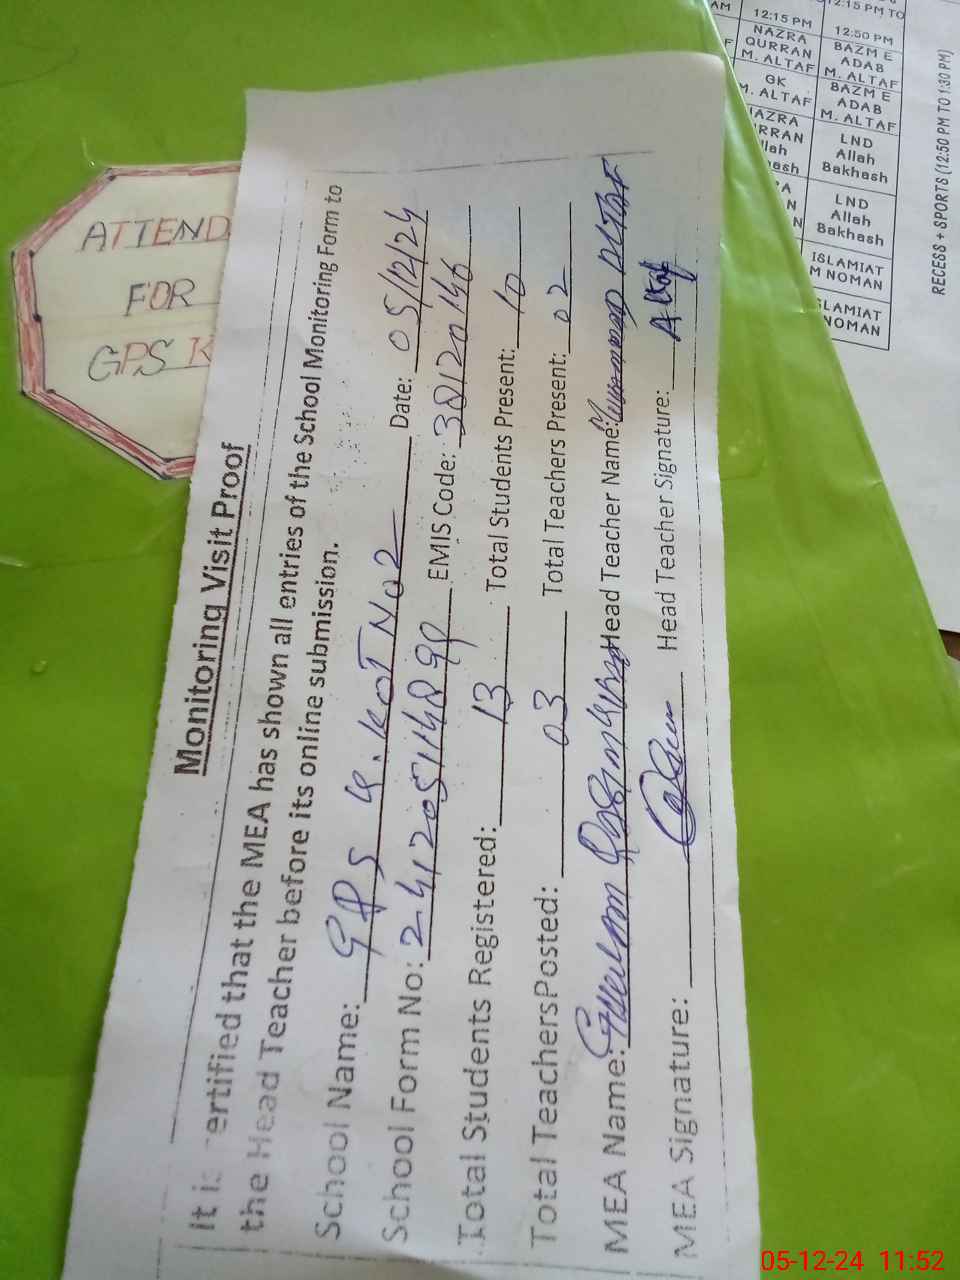 Monitoring Visit Proof
It is certified that the MEA has shown all entries of the School Monitoring Form to
the Head Teacher before its online submission.
School Name: GPS K. KOT NO2 Date: 05/12/24
School Form No: 2412051148 EMIS Code: 38120146
Total Students Registered: 13 Total Students Present: 10
Total TeachersPosted: 03 Total Teachers Present: 02
MEA Name: Ghulam Head Teacher Name: Muhammad Altaf
MEA Signature: Head Teacher Signature: Altaf
ATTEND
FOR
GPS K
AM 12:15 PM 12:15 PM TO
12:50 PM
NAZRA QURRAN M. ALTAF BAZM E ADAB M. ALTAF
GK M. ALTAF BAZM E ADAB M. ALTAF
LND Allah Bakhash
LND Allah Bakhash
ISLAMIAT M NOMAN
NOMAN
RECESS + SPORTS (12:50 PM TO 1:30 PM)
05-12-24 11:52